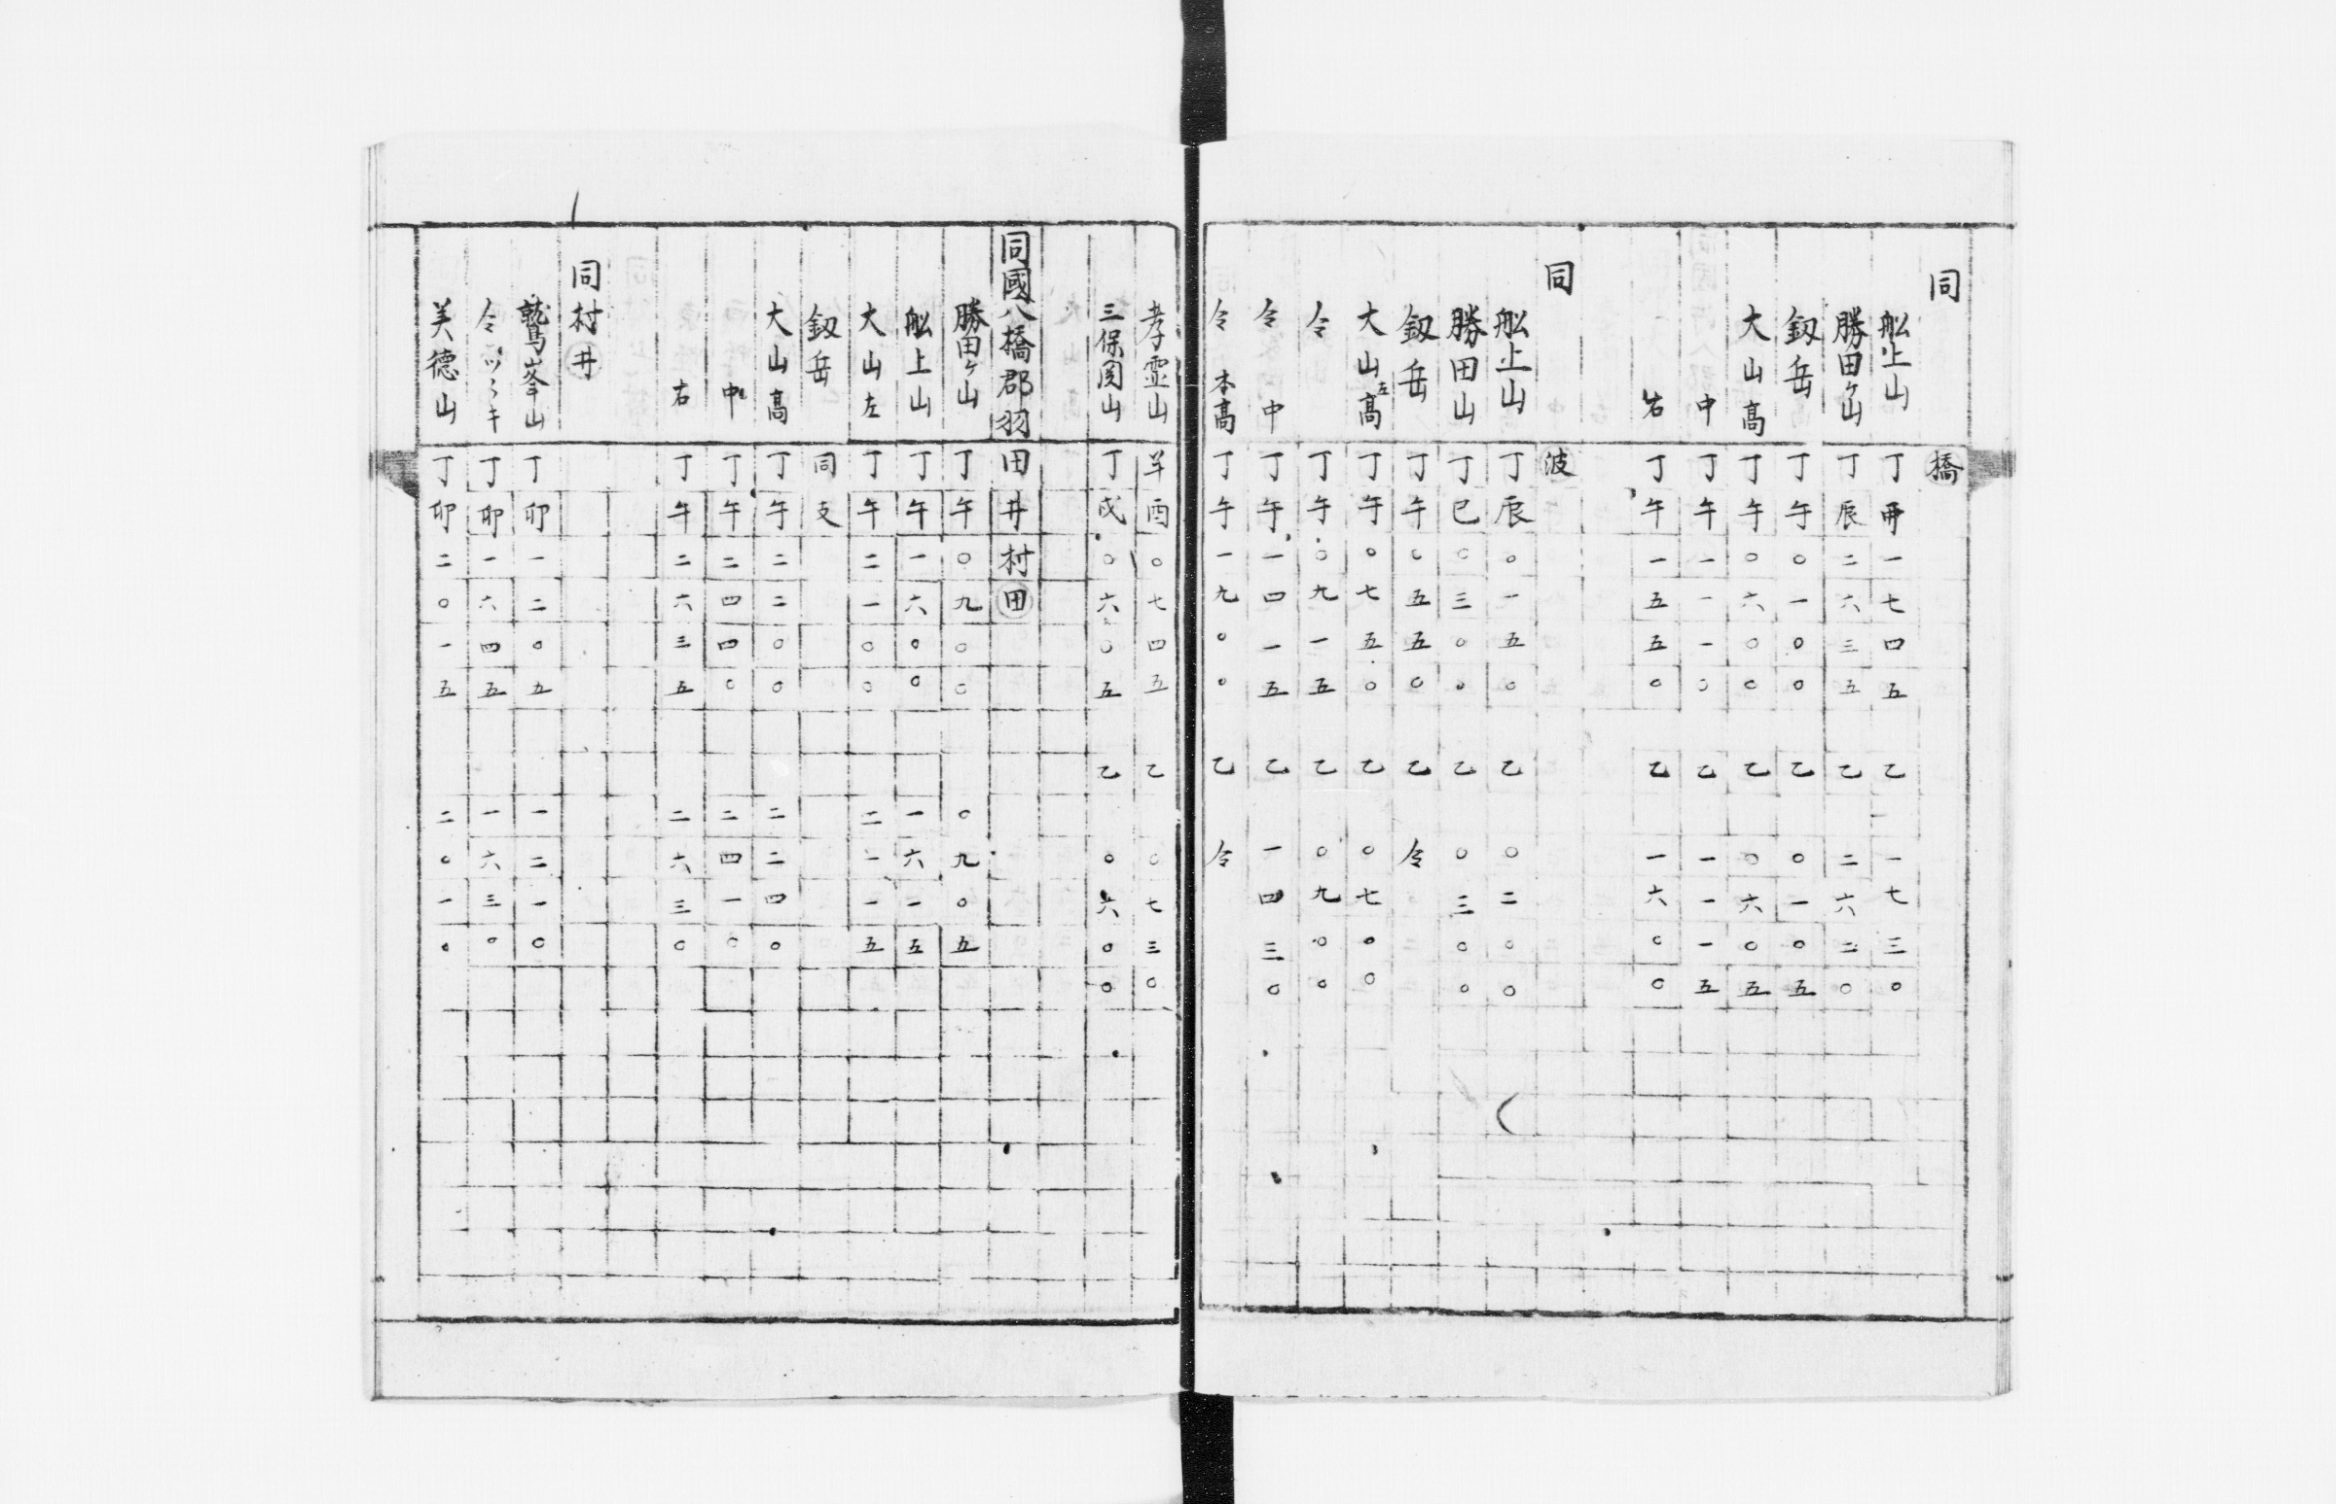 同 橋
舩上山 丁 一七四五 乙 一七三〇
勝田ケ山 丁辰 二六三五 乙 二六二〇
釼岳 丁午 〇一〇〇 乙 〇一〇五
大山高 丁午 〇六〇〇 乙 〇六〇五
中 丁午 一一一〇 乙 一一一五
右 丁午 一五五〇 乙 一六〇〇
同 波
舩上山 丁辰 〇一五〇 乙 〇二〇〇
勝田山 丁巳 〇三〇〇 乙 〇三〇〇
釼岳 丁午 〇五五〇 乙 仝
大山左高 丁午 〇七五〇 乙 〇七〇〇
仝 丁午 〇九一五 乙 〇九〇〇
仝 中 丁午 一四一五 乙 一四三〇
仝 本高 丁午 一九〇〇 乙 仝
孝霊山 羊酉 〇七四五 乙 〇七三〇
三保関山 丁戌 〇六〇五 乙 〇六〇〇
同國八橋郡羽田井村 田
勝田ケ山 丁午 〇九〇〇 〇九〇五
舩上山 丁午 一六〇〇 一六一五
大山左 丁午 二一〇〇 二一一五
釼岳 同支
大山高 丁午 二二〇〇 二二四〇
中 丁午 二四四〇 二四一〇
右 丁午 二六三五 二六三〇
同村 井
鷲峯山 丁卯 一二〇五 一二一〇
仝ツヽキ 丁卯 一六四五 一六三〇
美德山 丁卯 二〇一五 二〇一〇